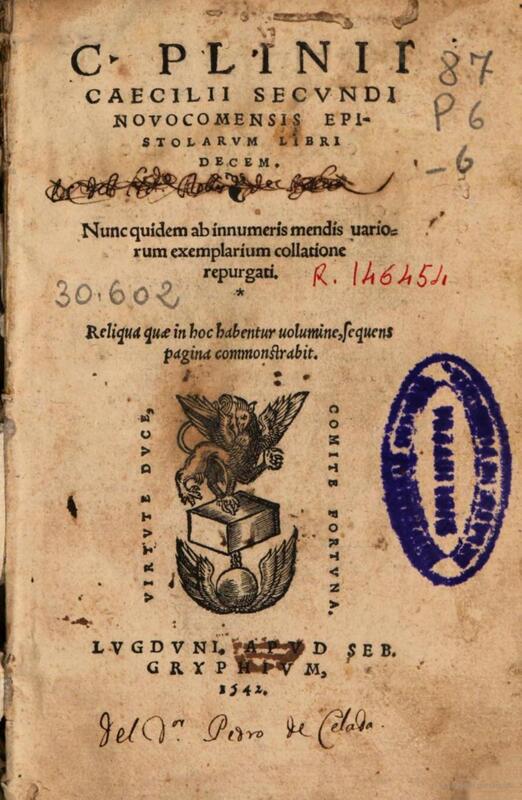 C. PLINII
CAECILII SECVNDI
NOVOCOMENSIS EPI-
STOLARVM LIBRI
DECEM.
87
P 6
-6
Nunc quidem ab innumeris mendis uario=
rum exemplarium collatione
repurgati.
R. 146454
*
30.602
Reliqua quæ in hoc habentur uolumine, sequens
pagina commonstrabit.
VIRTVTE DVCE,
COMITE FORTVNA.
LVGDVNI, APVD SEB.
GRYPHIVM,
1542.
Del D.or Pedro de Celada.